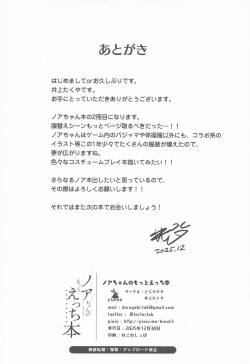 あとがき
はじめましてorお久しぶりです。
井上たくやです。
お手にとっていただきありがとうございます。
ノアちゃん本の2冊目になります。
服替えシーンもっとページ取るべきだった…！！
ノアちゃんはゲーム内のパジャマや体操服以外にも、コラボ系の
イラスト等この1年少々でたくさんの服装が増えたので、
夢が広がりますね。
色々なコスチュームプレイ本描いてみたい！！
さらなるノア本出したいと思っているので、
その際はよろしくお願いします！！
それではまた次の本でお会いしましょう！
2025.12
ノアちゃんの
もっと
えっち
本
ノアちゃんのもっとえっち本
サークル：とじから亭
井上たくや
発行日：2025年12月30日
印刷：ねこのしっぽ
無断転載・複製・アップロード禁止